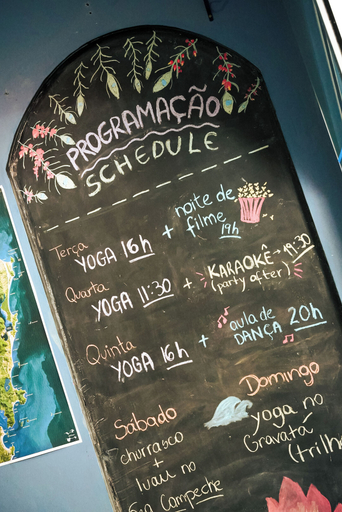 PROGRAMAÇÃO
SCHEDULE
Terça
YOGA 16h + noite de filme 19h
Quarta
YOGA 11:30 + KARAOKÊ → 19:30
(party after)
Quinta
YOGA 16h + aula de DANÇA 20h
Sábado
churrasco
+
luau no
Campeche
Domingo
yoga no
Gravatá
(trilh